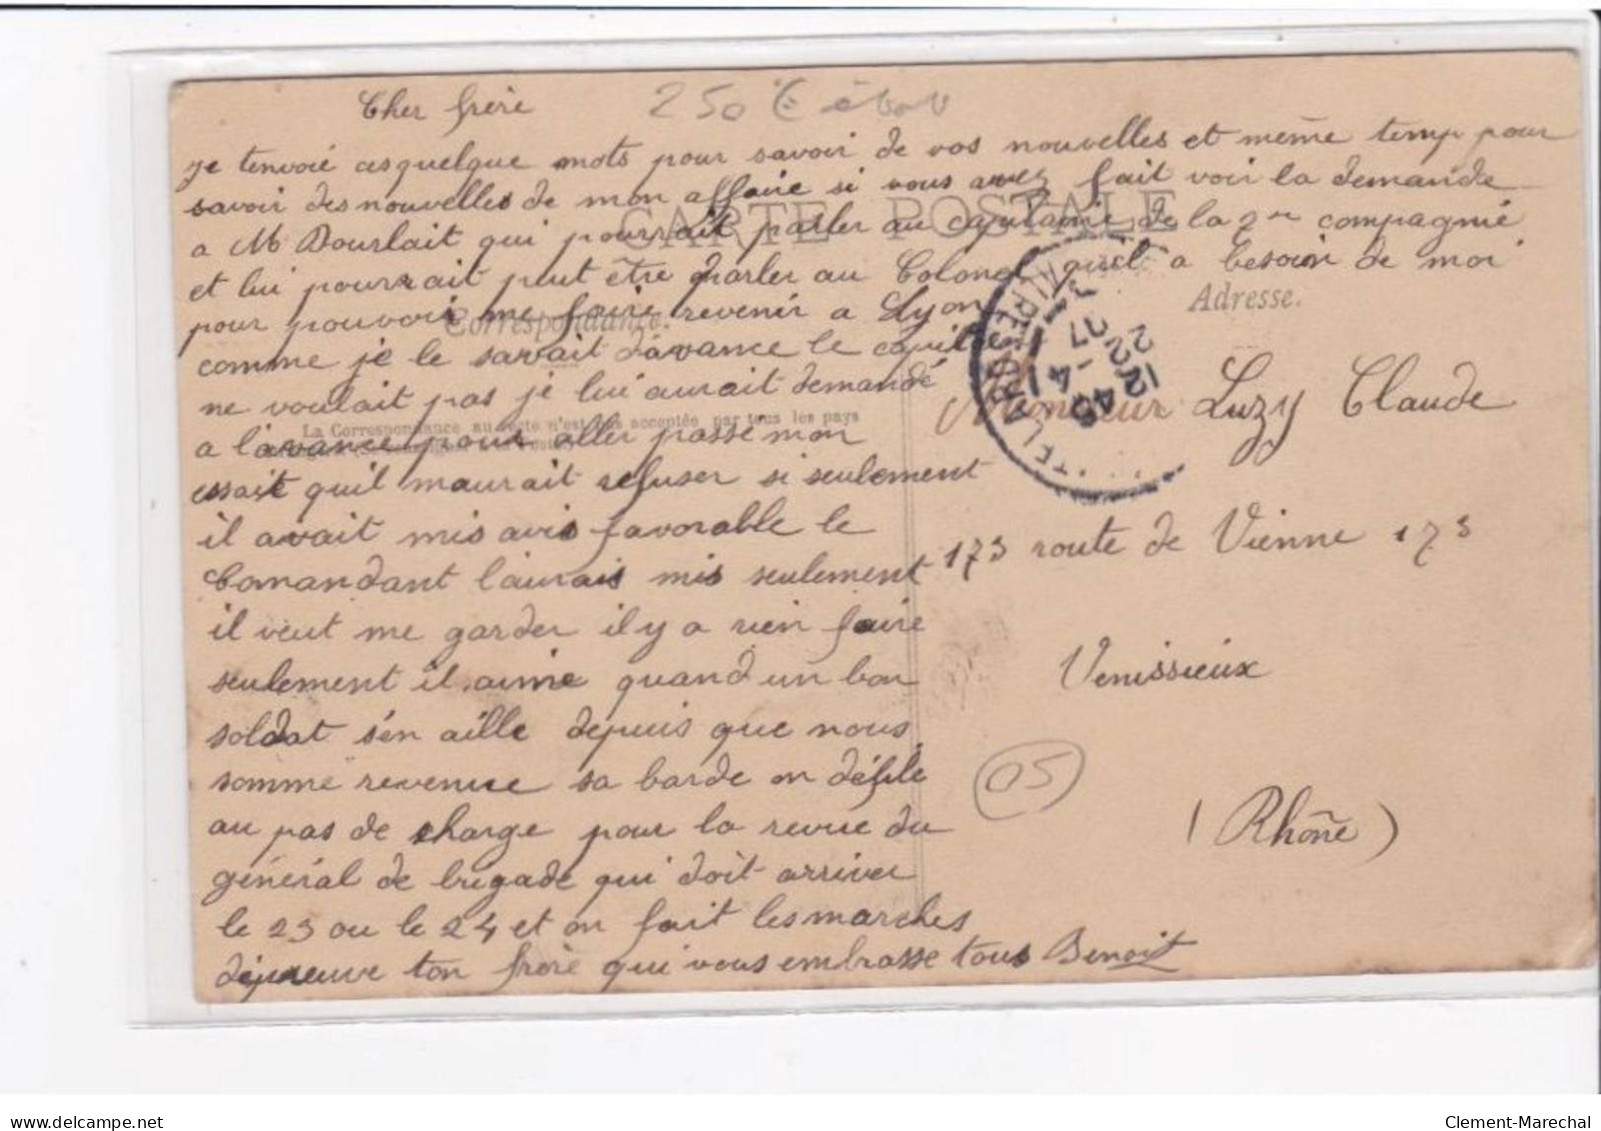 Cher frère
250 €
je tenvoie cesquelque mots pour savoir de vos nouvelles et meme temp pour
savoir des nouvelles de mon affaire si vous avez fait voir la demande
CARTE POSTALE
a M Dourlait qui pourrait parler au capitaine de la 2me compagnie
et lui pourrait peut être parler au Colonel quil a besoin de moi
Adresse.
pour pouvoir me faire revenir a Lyon
Correspondance.
comme je le savait d'avance le capitaine
ne voulait pas je lui aurait demandé
La Correspondance au recto n'est pas acceptée par tous les pays
a l'avance pour aller passe mon
essait quil maurait refuser si seulement
il avait mis avis favorable le
Comandant l'aurais mis seulement
il veut me garder il y a rien faire
seulement il aime quand un bon
soldat s'en aille depuis que nous
somme revenue sa barde on défile
au pas de charge pour la revue du
général de brigade qui doit arriver
le 23 ou le 24 et on fait les marches
d'épreuve ton frère qui vous embrasse tous Benoit
Monsieur Luzy Claude
173 route de Vienne 173
Venissieux
(Rhône)
05
delcampe.net
Clement-Marechal